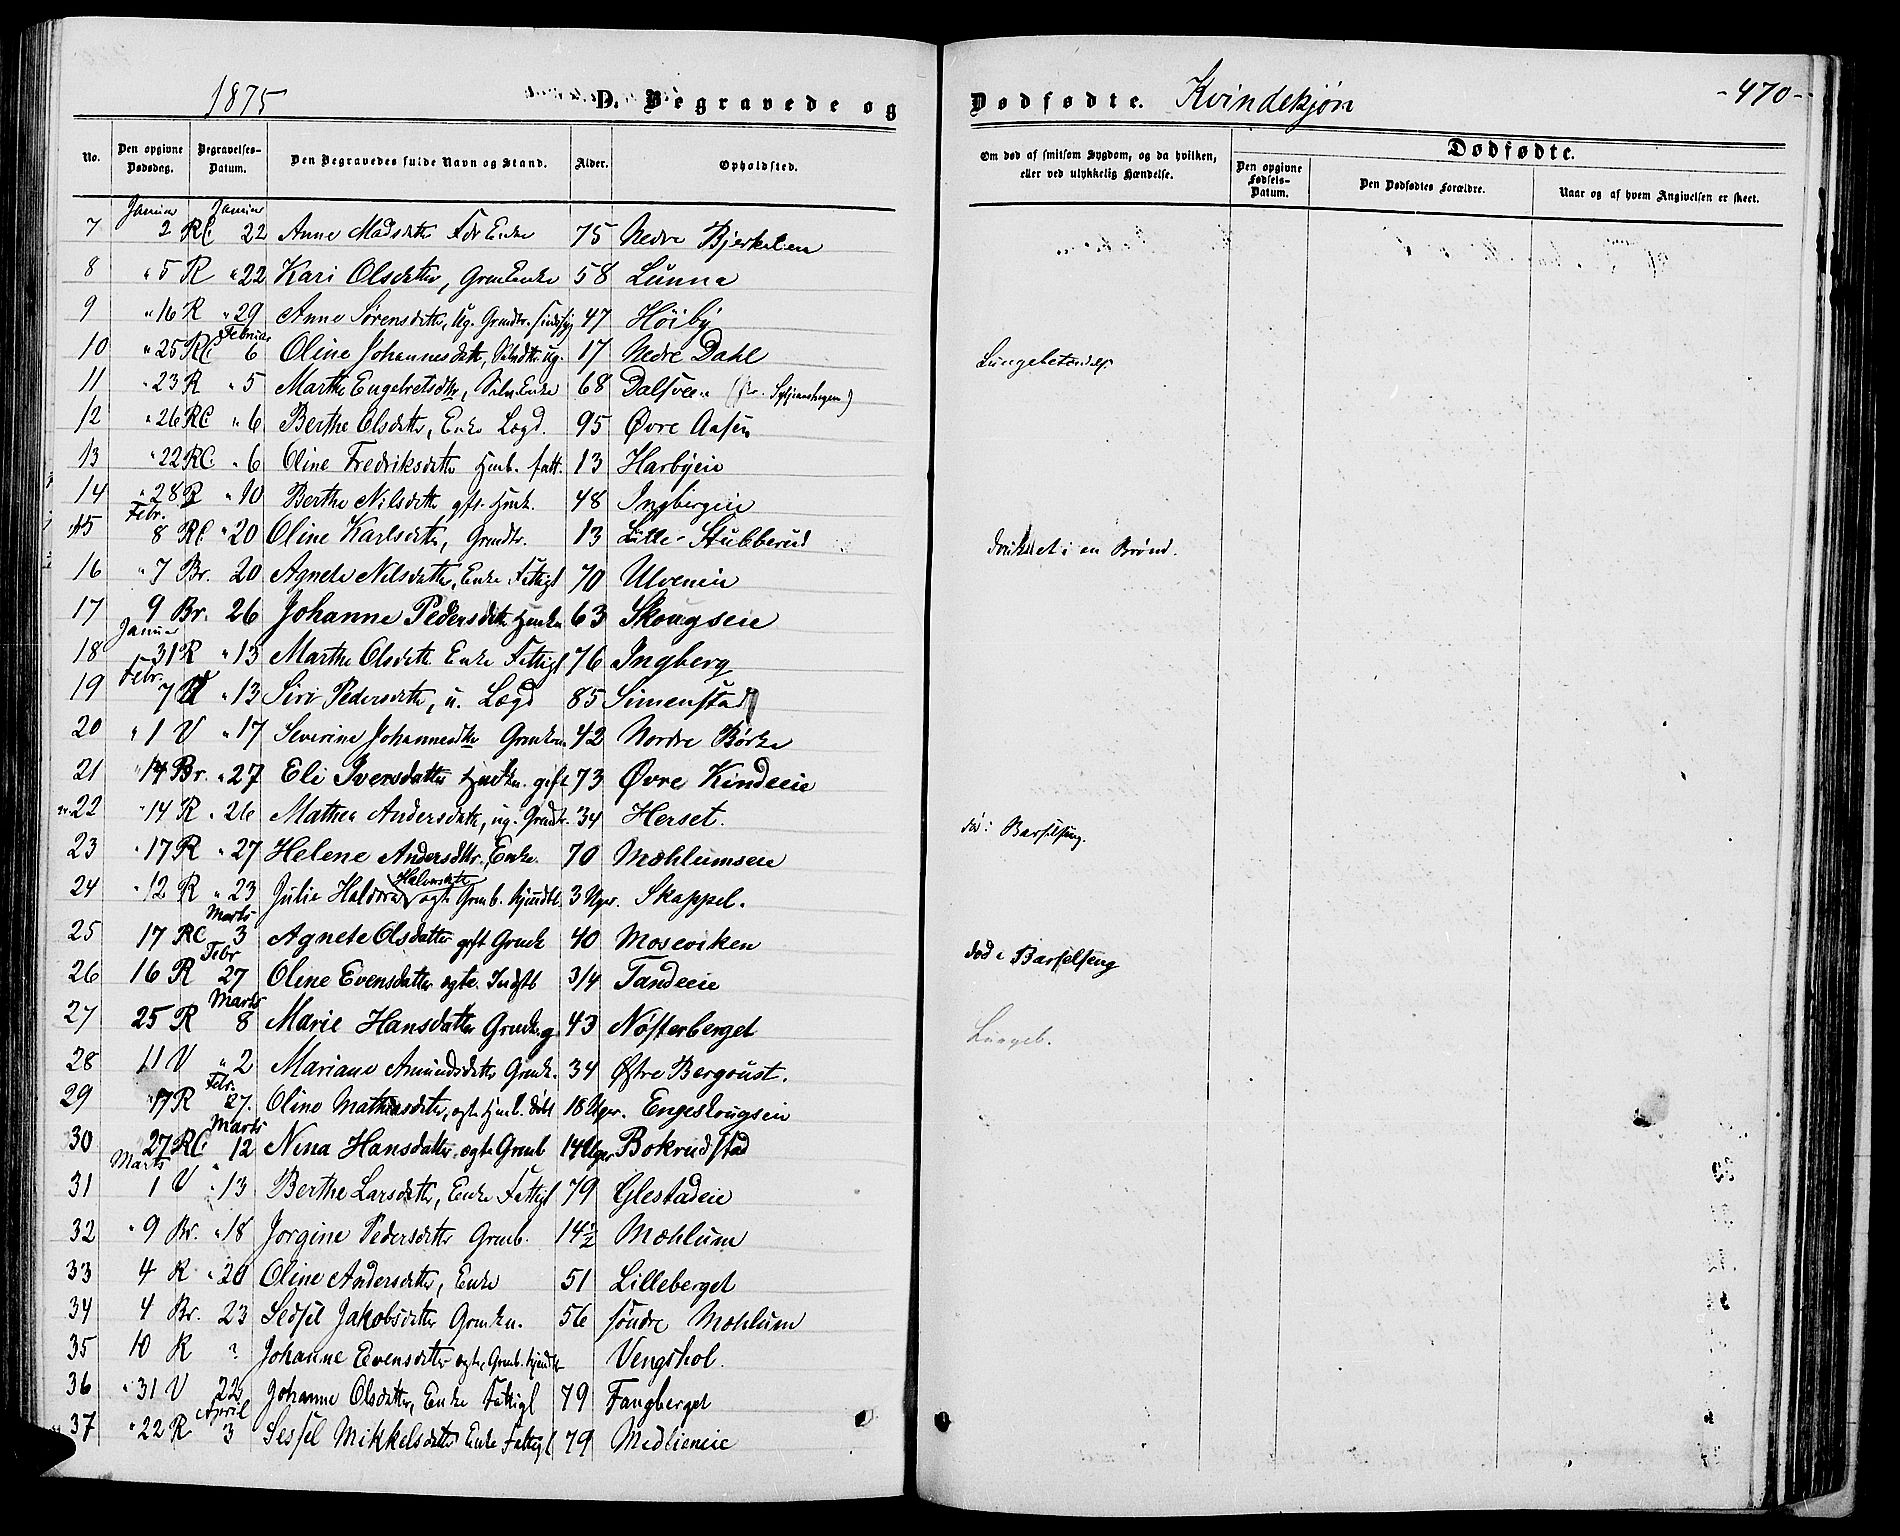 1875 D. Begravede og Dødfødte. Kvindekjøn -470-
No. Den opgivne Dødsdag. Begravelses-Datum. Den Begravedes fulde Navn og Stand. Alder. Opholdsted. Om død af smitsom Sygdom, og da hvilken, eller ved ulykkelig Hændelse. Dødfødte. Den opgivne Fødsels-Datum. Den Dødfødtes Forældre. Naar og af hvem Angivelsen er skeet.
Januar Januar
7 2 RC 22 Anne Madsdatter Fdr Enke 75 Nedre Bjerkelien
8 " 5 R " 22 Kari Olsdatter, GrmEnke 58 Lunna
9 " 16 R " 29 Anne Sørensdatter, Ug. Grmdtr. 47 Høiby
Februar
10 " 25 RC 6 Oline Johannesdttr, ug. 17 Nedre Dahl Lungebetændelse
11 " 23 R " 5 Marthe Engebretsdtr, Enke 68 Dalsveen
12 " 26 RC " 6 Berthe Olsdatter, Enke Lægd. 95 Øvre Aasen
13 " 22 RC " 6 Oline Fredriksdatter Hmb. fatt. 13 Harbyeie
14 " 28 R " 10 Berthe Nilsdattr gft. Hmk. 48 Ingbergeie
Febr.
15 8 RC " 20 Oline Karlsdatter, Grmdtr. 13 Lille-Stubberud druknet i en Brønd.
16 " 7 Br. 20 Agnete Nilsdatter, Enke Fattigl 70 Ulveneie
17 9 Br. 26 Johanne Pedersdatter Hmkn 63 Skougseie
Januar
18 31 R " 13 Marthe Olsdattr Enke Fattigl 76 Ingberg
Febr.
19 7 V " 13 Siri Pedersdatter, u. Lægd 85 Simenstad
20 " 1 V " 17 Severine Johannesdtr Grmkon 42 Nordre Børke
21 " 14 Br. " 27 Eli Iversdatter Hmkn. gift 73 Øvre Kindeeie
22 " 14 R " 26 Mathea Andersdatter, ug. Grmdtr. 34 Herset. død i Barselseng.
23 " 17 R " 27 Helene Andersdttr. Enke. 70 Mæhlumseie
24 " 12 R " 23 Julie Halvorsdatter ægte Grmb. 3 Uger. Skappel.
Marts
25 17 RC 3 Agnete Olsdatter gift Grmk 40 Moseviken død i Barselseng
Febr
26 16 R 27 Oline Evensdatter ægte. Indstb 3/4 Tandeeie
Marts
27 25 R 8 Marie Hansdatter Grmk g. 43 Nøsterberget Lungeb.
28 11 V " 2 Mariane Amundsdatter Grmk. 34 Østre Bergoust.
Febr.
29 17 R 27. Oline Mathiasdatter, ægte Hmb. 18 Uger. Engeskougseie
Marts
30 27 RC 12 Nina Hansdatter ægte Grmb 14 Uger Bokrudstad
Marts
31 1 V " 13 Berthe Larsdatter, Enke Fattigl 79 Glestadeie
32 " 9 Br. " 18 Jorgine Pedersdatter Grmb. 14½ Mæhlum
33 4 R " 20 Oline Andersdatter, Enke 51 Lilleberget
34 4 Br. 23 Sedsel Jakobsdatter Grmkn. 56 søndre Mæhlum
35 10 R ? Johanne Evensdatter ægte, Grmb. Vengshol.
36 " 31 V 22 Johanne Olsdatter, Enke Fattigl 79 Fangberget
April
37 " 22 R 3 Sessel Mikkelsdatter Enke Fattigl 79 Medlieneie